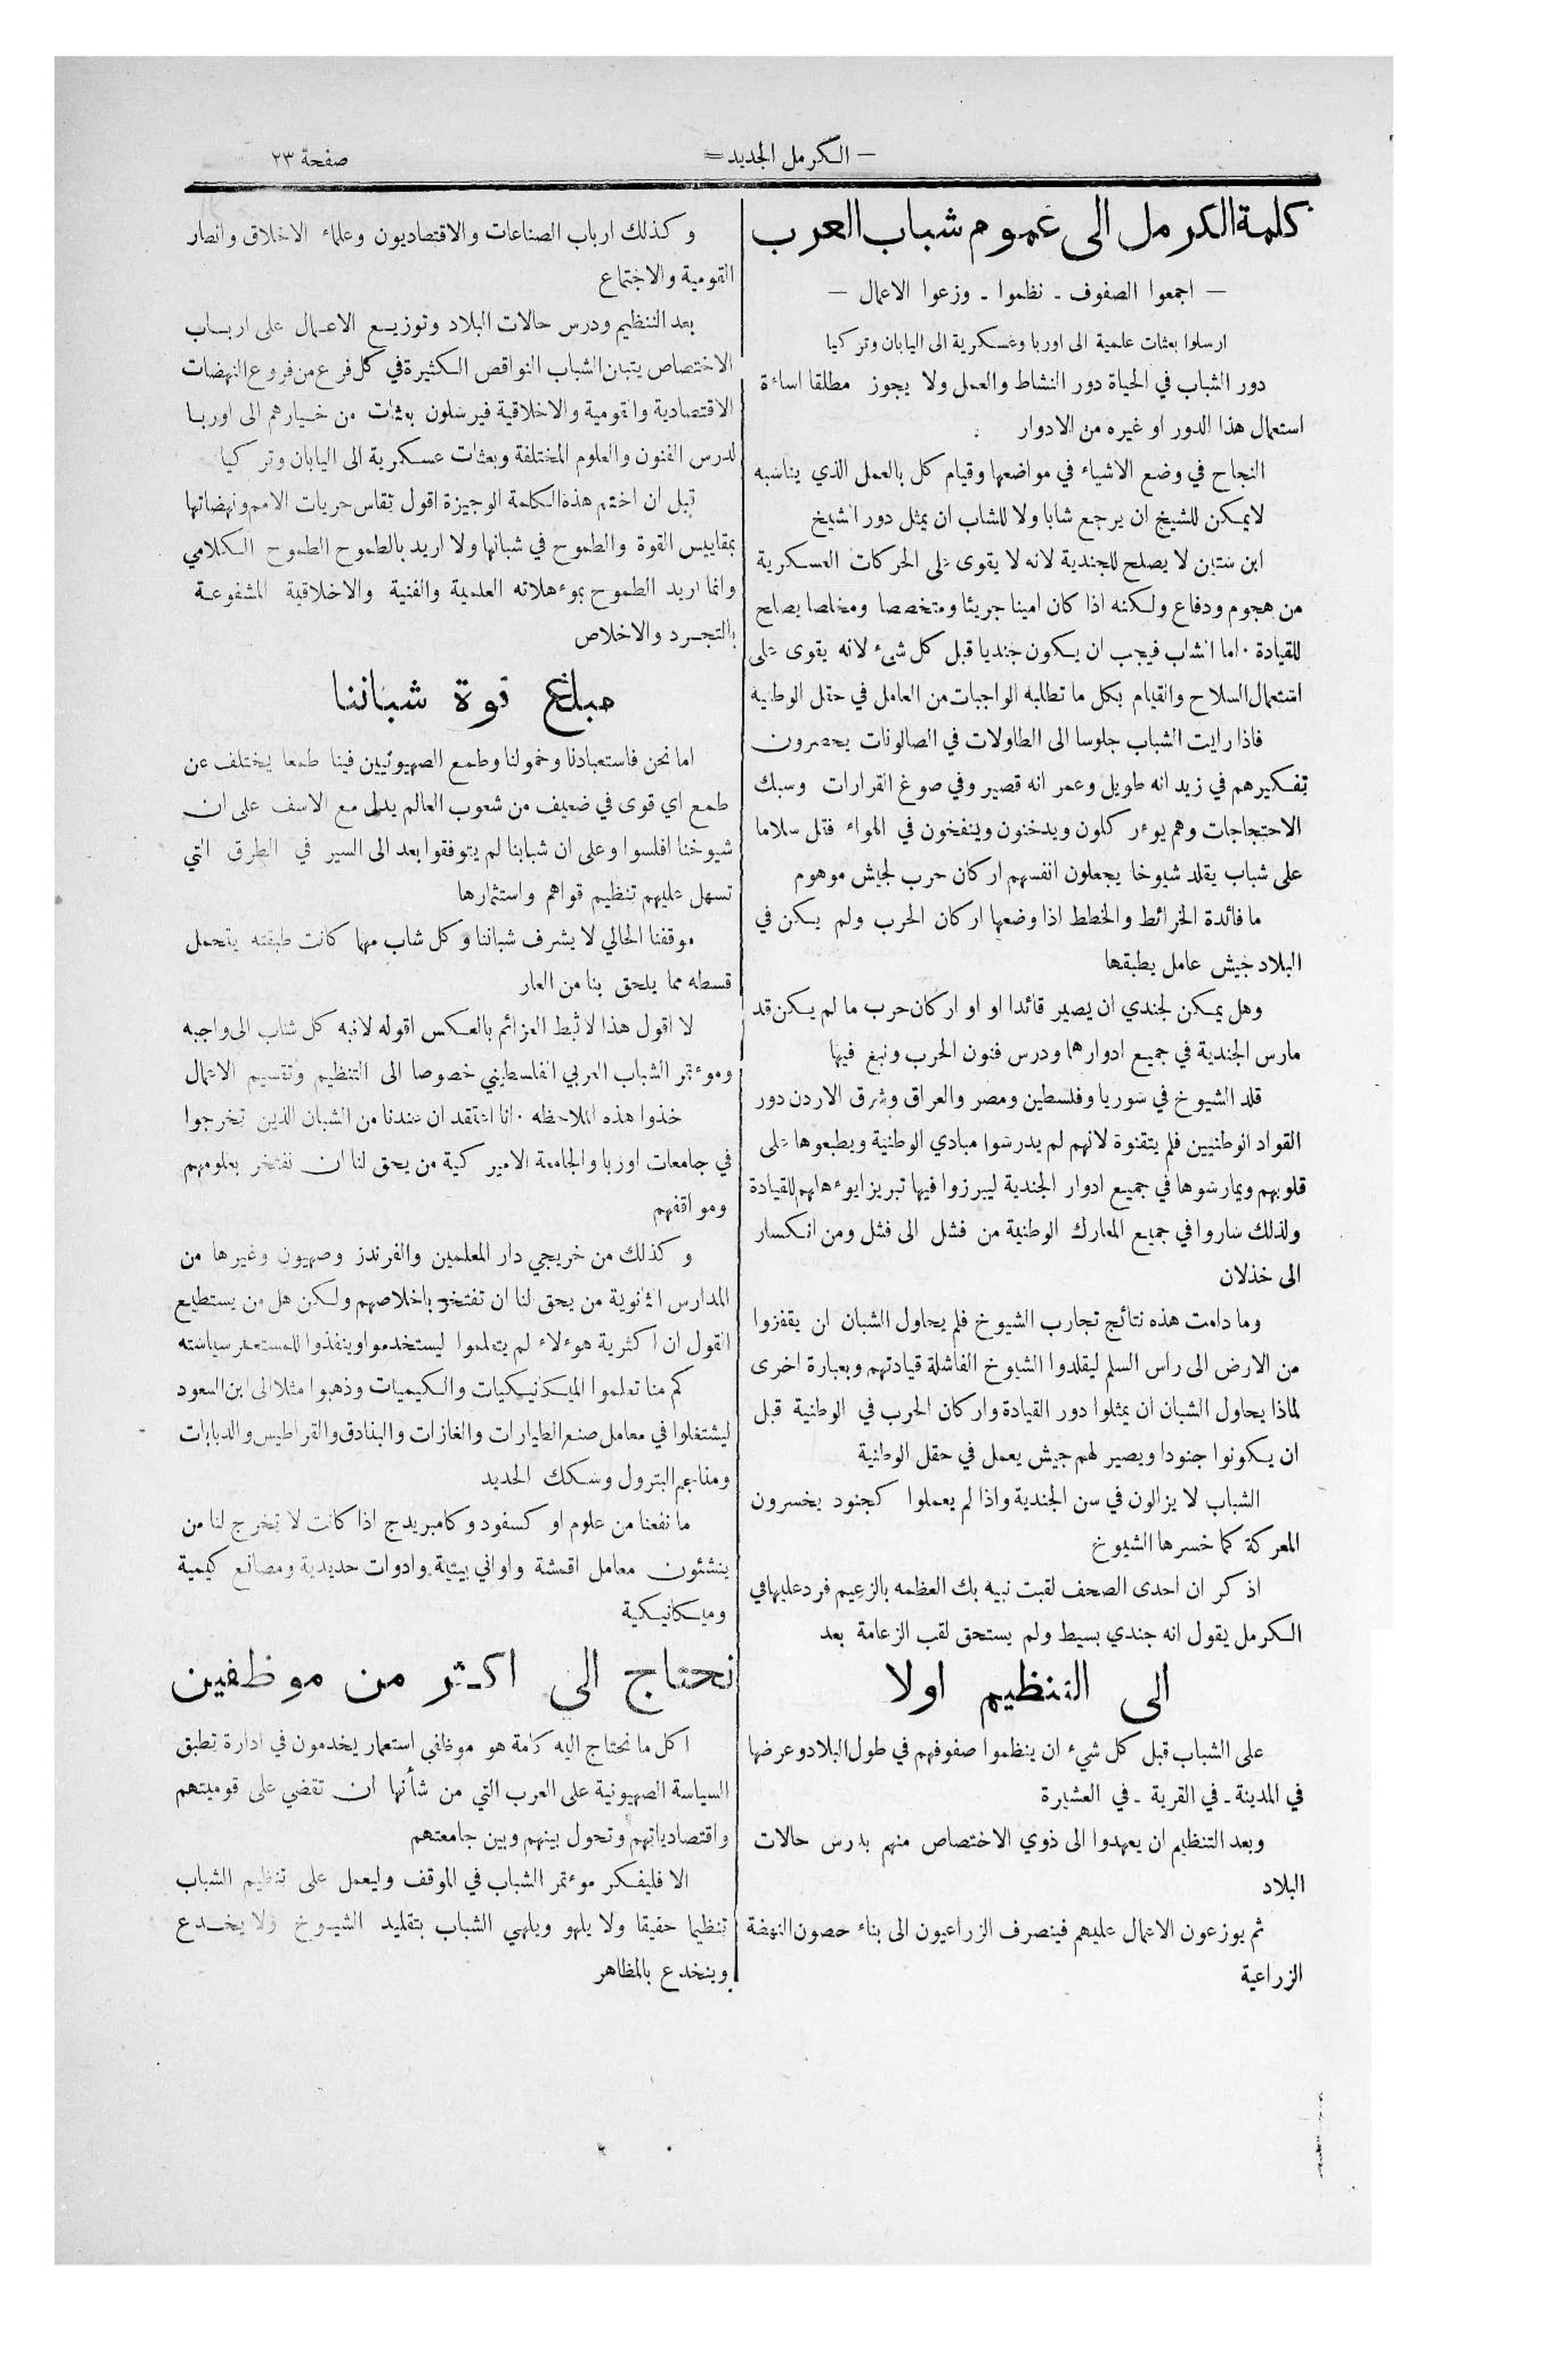 — الكرمل الجديد =
صفحة ٢٣
كلمة الكرمل الى عموم شباب العرب
— اجمعوا الصفوف ـ نظموا ـ وزعوا الاعمال —
ارسلوا بعثات علمية الى اوربا وعسكرية الى اليابان وتركيا
دور الشباب في الحياة دور النشاط والعمل ولا يجوز مطلقا اساءة
استعمال هذا الدور او غيره من الادوار
النجاح في وضع الاشياء في مواضعها وقيام كل بالعمل الذي يناسبه
لايمكن للشيخ ان يرجع شابا ولا للشاب ان يمثل دور الشيخ
ابن ستين لا يصلح للجندية لانه لا يقوى على الحركات العسكرية
من هجوم ودفاع ولكنه اذا كان امينا جريئا ومتخصصا ومخلصا يصلح
للقيادة ٠ اما الشاب فيجب ان يكون جنديا قبل كل شيء لانه يقوى على
استعمال السلاح والقيام بكل ما تطلبه الواجبات من العامل في حقل الوطنية
فاذا رايت الشباب جلوسا الى الطاولات في الصالونات يحصرون
تفكيرهم في زيد انه طويل وعمر انه قصير وفي صوغ القرارات وسبك
الاحتجاجات وهم يوءركلون ويدخنون وينفخون في الهواء فقل سلاما
على شباب يقلد شيوخا يجعلون انفسهم اركان حرب لجيش موهوم
ما فائدة الخرائط والخطط اذا وضعها اركان الحرب ولم يكن في
البلاد جيش عامل يطبقها
وهل يمكن لجندي ان يصير قائدا او او اركان حرب ما لم يكن قد
مارس الجندية في جميع ادوارها ودرس فنون الحرب ونبغ فيها
قلد الشيوخ في سوريا وفلسطين ومصر والعراق وشرق الاردن دور
القواد الوطنيين فلم يتقنوة لانهم لم يدرسوا مبادي الوطنية ويطبعوها على
قلوبهم ويمارسوها في جميع ادوار الجندية ليبرزوا فيها تبريزا يوءهلهم للقيادة
ولذلك ساروا في جميع المعارك الوطنية من فشل الى فشل ومن انكسار
الى خذلان
وما دامت هذه نتائج تجارب الشيوخ فلم يحاول الشبان ان يقفزوا
من الارض الى راس السلم ليقلدوا الشيوخ الفاشلة قيادتهم وبعبارة اخرى
لماذا يحاول الشبان ان يمثلوا دور القيادة واركان الحرب في الوطنية قبل
ان يكونوا جنودا ويصير لهم جيش يعمل في حقل الوطنية
الشباب لا يزالون في سن الجندية واذا لم يعملوا كجنود يخسرون
المعركة كما خسرها الشيوخ
اذكر ان احدى الصحف لقبت نبيه بك العظمه بالزعيم فرد عليها في
الكرمل يقول انه جندي بسيط ولم يستحق لقب الزعامة بعد
الى التنظيم اولا
على الشباب قبل كل شيء ان ينظموا صفوفهم في طول البلاد وعرضها
في المدينة ـ في القرية ـ في العشيرة
وبعد التنظيم ان يعهدوا الى ذوي الاختصاص منهم بدرس حالات
البلاد
ثم يوزعون الاعمال عليهم فينصرف الزراعيون الى بناء حصون النهضة
الزراعية
وكذلك ارباب الصناعات والاقتصاديون وعلماء الاخلاق وانصار
القومية والاجتماع
بعد التنظيم ودرس حالات البلاد وتوزيع الاعمال على ارباب
الاختصاص يتبين الشباب النواقص الكثيرة في كل فرع من فروع النهضات
الاقتصادية والقومية والاخلاقية فيرسلون بعثات من خيارهم الى اوربا
لدرس الفنون والعلوم المختلفة وبعثات عسكرية الى اليابان وتركيا
قبل ان اختم هذه الكلمة الوجيزة اقول تقاس حريات الامم ونهضاتها
بمقاييس القوة والطموح في شبانها ولا اريد بالطموح الطموح الكلامي
وانما اريد الطموح بموءهلاته العلمية والفنية والاخلاقية المشفوعة
بالتجرد والاخلاص
مبلغ قوة شباننا
اما نحن فاستعبادنا وخمولنا وطمع الصهيونيين فينا طمعا يختلف عن
طمع اي قوى في ضعيف من شعوب العالم يدل مع الاسف على ان
شيوخنا افلسوا وعلى ان شبابنا لم يتوفقوا بعد الى السير في الطرق التي
تسهل عليهم تنظيم قواهم واستثمارها
موقفنا الحالي لا يشرف شباننا وكل شاب مهما كانت طبقته يتحمل
قسطه مما يلحق بنا من العار
لا اقول هذا لاثبط العزائم بالعكس اقوله لانبه كل شاب الى واجبه
وموءتمر الشباب العربي الفلسطيني خصوصا الى التنظيم وتقسيم الاعمال
خذوا هذه الملاحظه ٠ انا اعتقد ان عندنا من الشبان الذين تخرجوا
في جامعات اوربا والجامعة الاميركية من يحق لنا ان نفتخر بعلومهم
ومواقفهم
وكذلك من خريجي دار المعلمين والفرندز وصهيون وغيرها من
المدارس الثانوية من يحق لنا ان تفتخر باخلاصهم ولكن هل من يستطيع
القول ان اكثرية هوءلاء لم يتعلموا ليستخدموا وينفذوا للمستعمر سياسته
كم منا تعلموا الميكانيكيات والكيميات وذهبوا مثلا الى ابن السعود
ليشتغلوا في معامل صنع الطيارات والغازات والبنادق والقراطيس والدبابات
ومناجم البترول وسكك الحديد
ما نفعنا من علوم اوكسفود وكامبريدج اذا كانت لا تخرج لنا من
ينشئون معامل اقمشة واواني بيتية وادوات حديدية ومصانع كيمية
وميكانيكية
نحتاج الى اكثر من موظفين
اكل ما نحتاج اليه كامة هو موظفي استعمار يخدمون في ادارة تطبق
السياسة الصهيونية على العرب التي من شأنها ان تقضي على قوميتهم
واقتصادياتهم وتحول بينهم وبين جامعتهم
الا فليفكر موءتمر الشباب في الموقف وليعمل على تنظيم الشباب
تنظيما حقيقا ولا يلهو ويلهي الشباب بتقليد الشيوخ ولا يخدع
وينخدع بالمظاهر